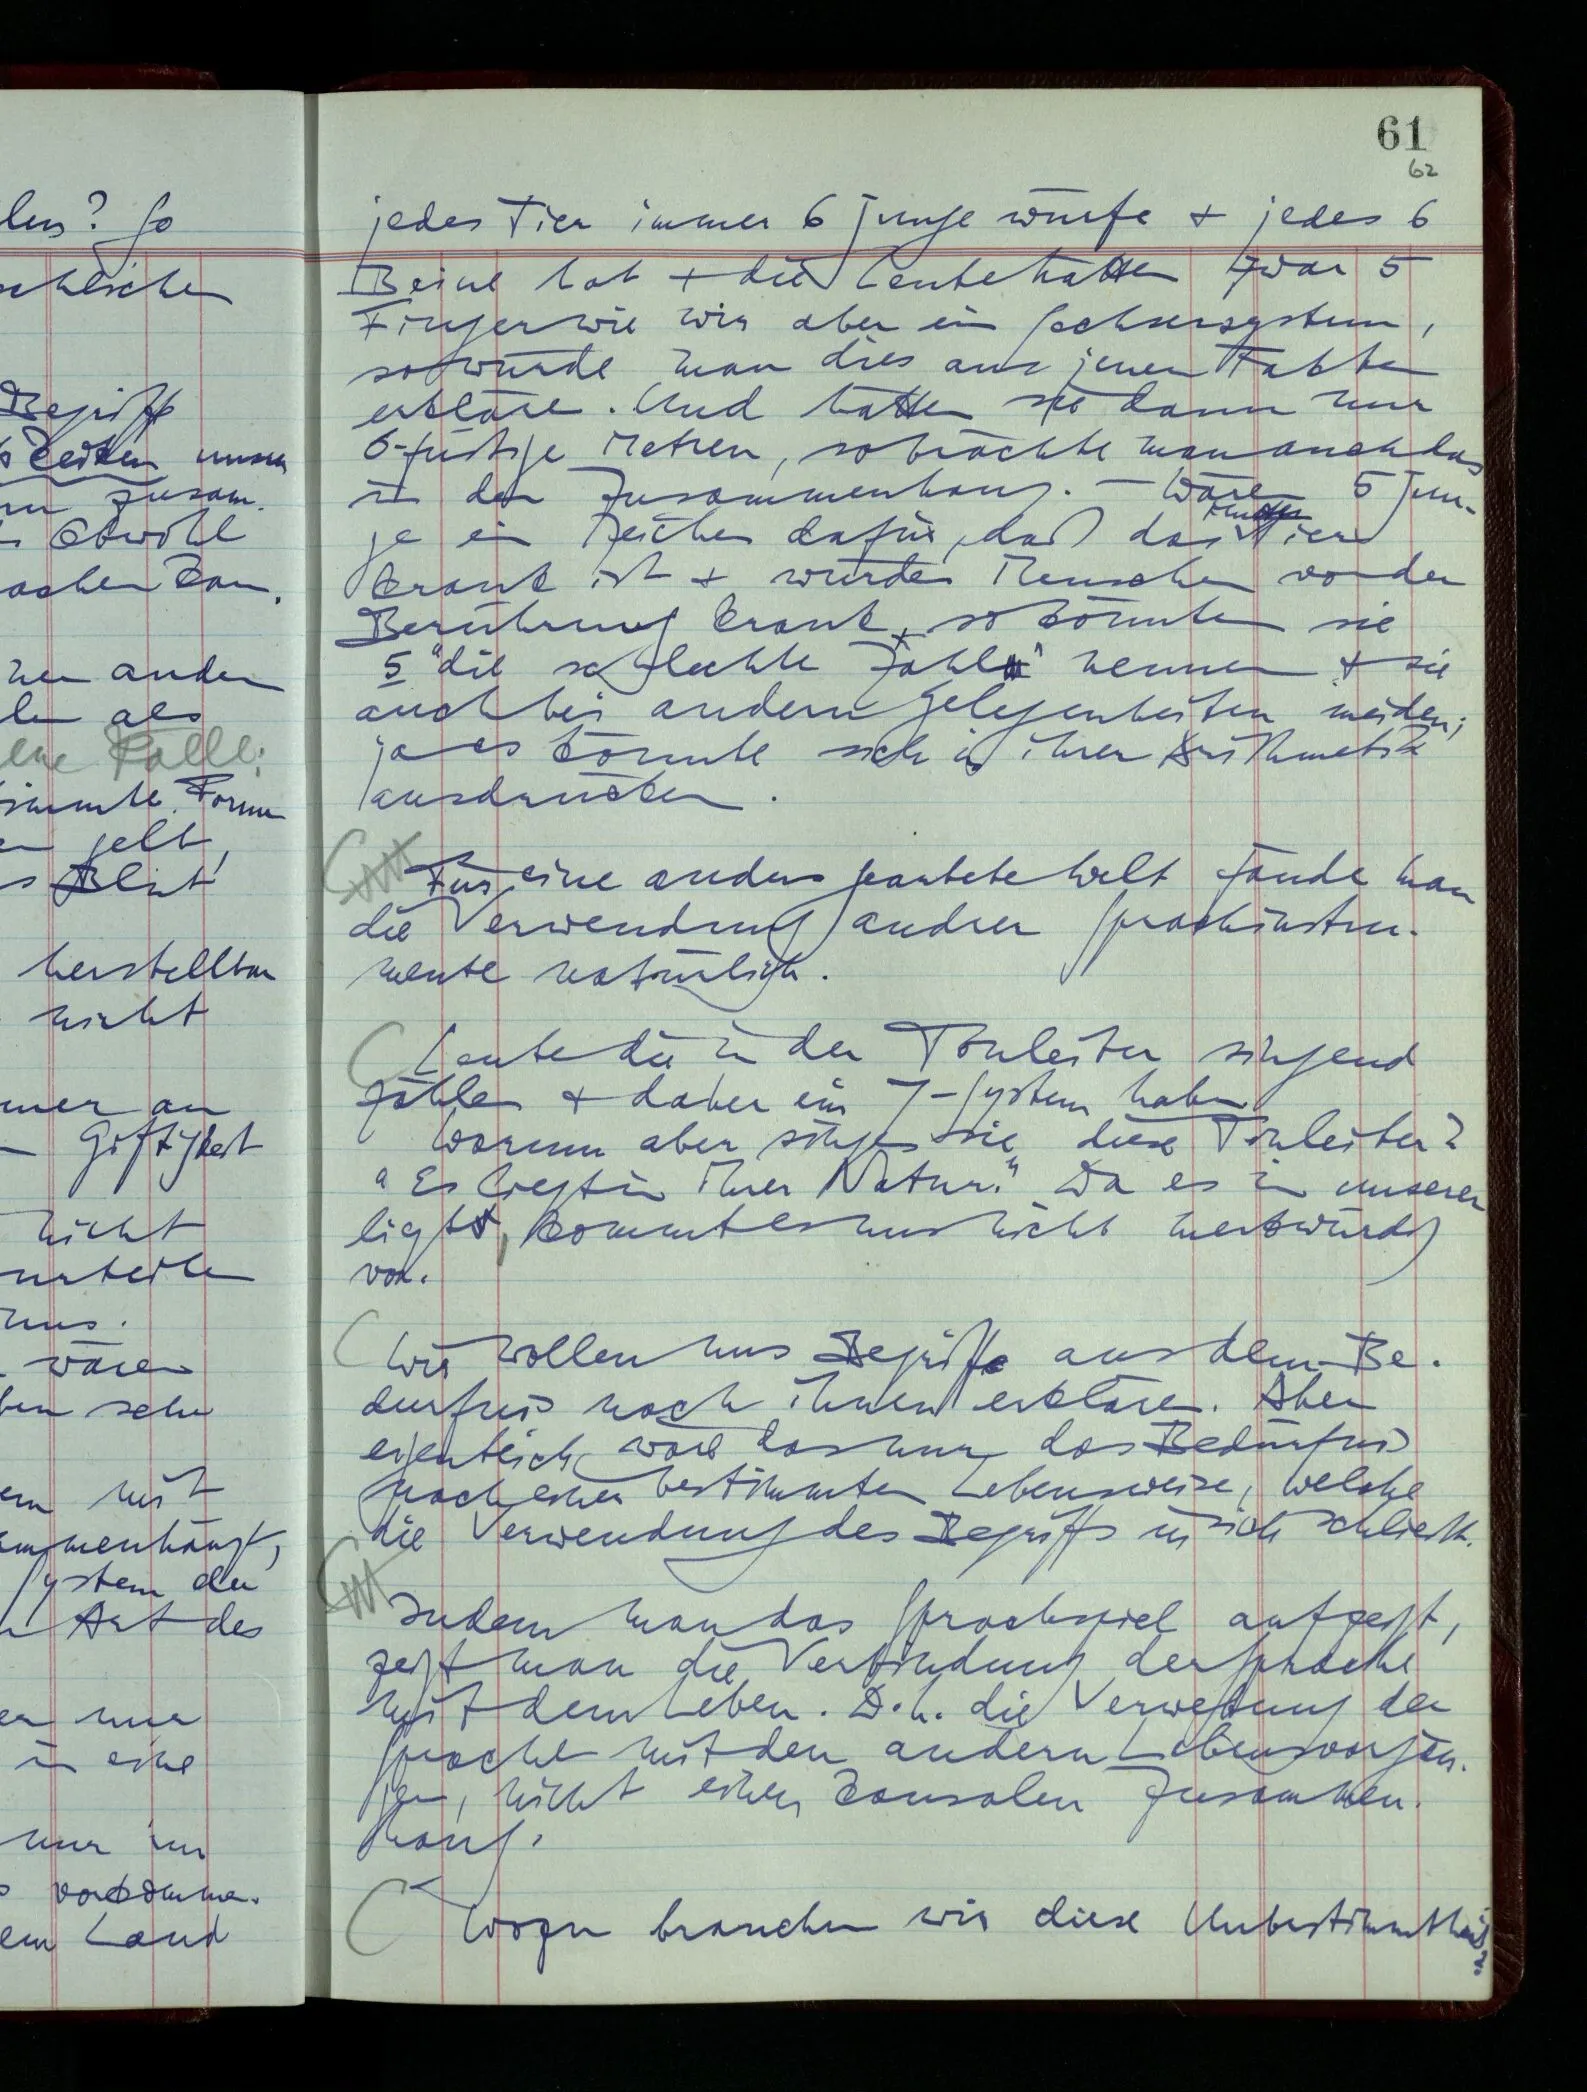 lern? So
schlichen
Begriffs
Zeiten unser
zusam-
obwohl
anden
als
Fälle;
Form
gelb,
Blut
herstellbar
nicht
an
Giftigkeit
nicht
urteilen
uns.
wären
sehr
mit
System der
Art des
nur
in eine
nur im
vorkomme-
Land
61
62
jedes Tier immer 6 Junge würfe + jedes 6
Beine hat + die Leute hätten zwar 5
Finger wie wir aber ein Sechsersystem,
so würde man dies aus jenen Fakten
erklären. Und hätten sie dann nur
6-füßige Metren, so brächte man auch das
in den Zusammenhang. – Wären 5 Jun-
ge ein Zeichen dafür, daß das Muttertier
krank ist + würden Menschen von der
Berührung krank, so könnten sie
5 "die schlechte Zahl" nennen + sie
auch bei andern Gelegenheiten meiden;
ja es könnte sich in ihrer Arithmetik
ausdrücken.
Für eine anders geartete Welt fände man
die Verwendung andrer Sprachinstru-
mente natürlich.
Leute die in der Tonleiter singend
zählen + daher ein 7-System haben
Warum aber singen sie diese Tonleiter?
"Es liegt in ihrer Natur." Da es in unserer
liegt, kommt es uns nicht merkwürdig
vor.
Wir wollen uns Begriffe aus dem Be-
dürfnis nach ihnen erklären. Aber
eigentlich wäre das nur das Bedürfnis
nach einer bestimmten Lebensweise, welche
die Verwendung des Begriffs in sich schließt.
Indem man das Sprachspiel aufzeigt,
zeigt man die Verbindung der Sprache
mit dem Leben. D.h. die Verwebung der
Sprache mit den andern Lebensvorgän-
gen, nicht einen kausalen Zusammen-
hang.
Wozu brauchen wir diese Unbestimmtheit?